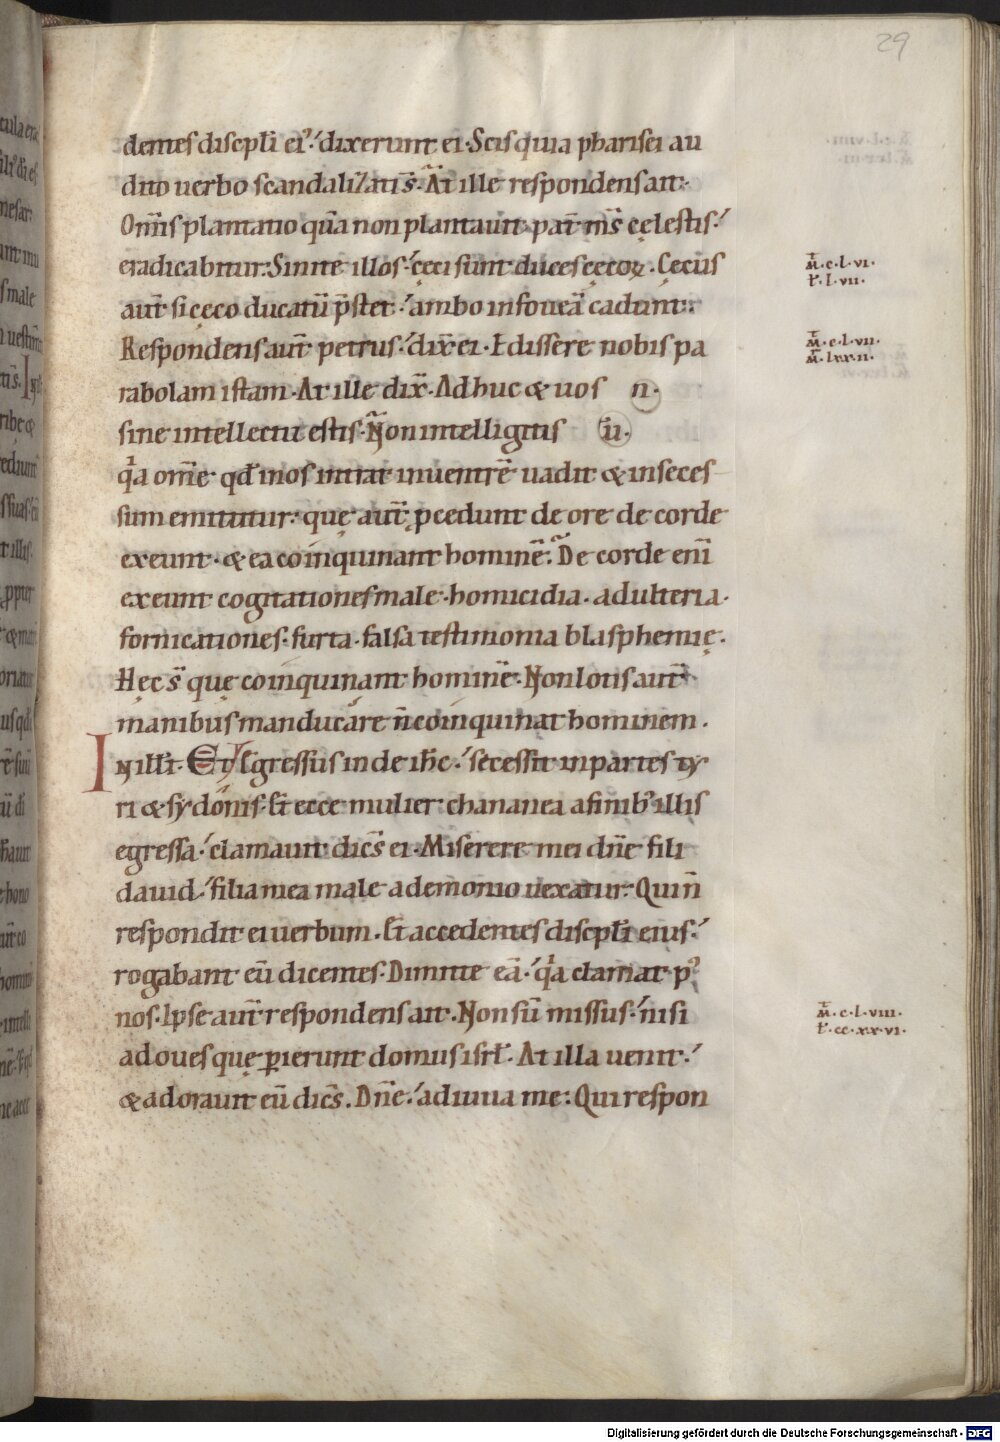 29
dentes discpl̄i ei᾽: dixerunt ei. Scis quia pharisei au
dito uerbo scandalizati s̄. At ille respondens ait.
Om̄is plantatio quā non plantauit pat̄ ms̄ cęlestis:
eradicabitur. Sinite illos: cęci sunt duces cęcoꝝ. Cęcus
aut̄ si cęco ducatū p̄stet: ambo in foueā cadunt.
Respondens aut̄ petrus: dix̄ ei. Edissere nobis pa
rabolam istam. At ille dix̄. Adhuc & uos n.
sine intellectu estis. Non intelligitis ū.
qͥa om̄e qd̄ in os intrat in uentrē uadit & in seces
sum emittitur. quę aut̄ ꝓcedunt de ore de corde
exeunt. & ea coinquinant hominē. De corde enī
exeunt cogitationes male. homicidia. adulteria.
fornicationes. furta. falsa testimonia blasphemię.
Hęc s̄ quę coinquinant hominē. Non lotis aut̄
manibus manducare n̄ coinquinat hominem.
In ill̄i. Et Egressus inde ih̄c: secessit in partes ty
ri & sydonis. Et ecce mulier chananea a finib᾽ illis
egressa: clamauit dic̄s ei. Miserere mei dn̄e fili
dauid: filia mea male a demonio uexatur. Qui n̄
respondit ei uerbum. Et accedentes discpl̄i eius:
rogabant eū dicentes. Dimitte eā: qͥa clamat p᾽
nos. Ipse aut̄ respondens ait. Non sū missus: nisi
ad oues quę ꝑierunt domus isrł. At illa uenit:
& adorauit eū dic̄s. Dn̄e: adiuua me. Qui respon
m̄.c.l.vi.
ł.l.vii.
m̄.c.l.vii.
m̄.lxx.ii.
m̄.c.l.viii.
ł.cc.xx.vi.
Digitalisierung gefördert durch die Deutsche Forschungsgemeinschaft - DFG